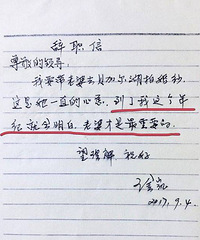 辞职信
尊敬的领导
我要带老婆去贝加尔湖拍婚纱
这是她一直的心愿，到了我这个年
纪就会明白，老婆才是最重要的。
望理解 祝好
2017.9.4.